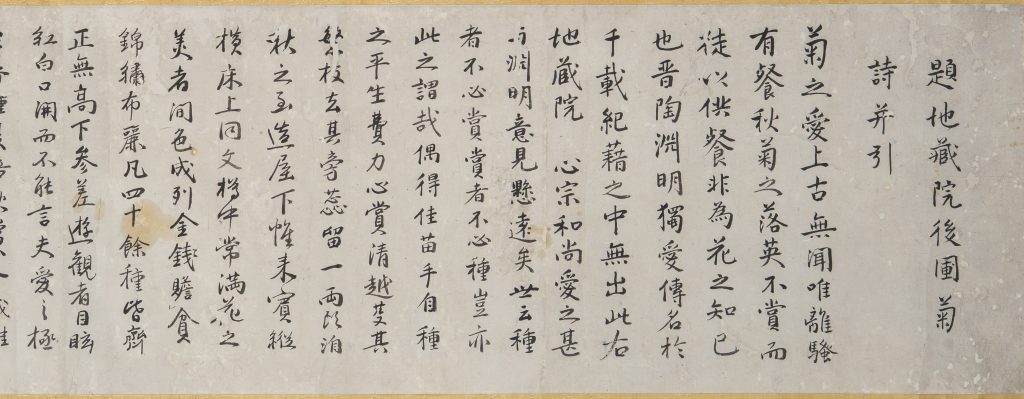 題地藏院後圃菊
詩并引
菊之愛上古無聞唯離騷
有餐秋菊之落英不賞而
徒以供餐非為花之知已
也晋陶淵明獨愛傳名於
千載紀藉之中無出此右
地蔵院 心宗和尚愛之甚
与淵明意見懸遠矣世云種
者不心賞賞者不心種豈亦
此之謂哉偶得佳苗手自種
之平生費力心賞清越芟其
繁枝去其旁蕊留一両洎
秋之至造屋下帷来賓縱
横床上同文樽中常満花之
美者間色成列金錢贍貧
錦繡布麗凡四十餘種皆齊
正無高下参差遊観者目眩
紅白口開而不能言夫愛之極